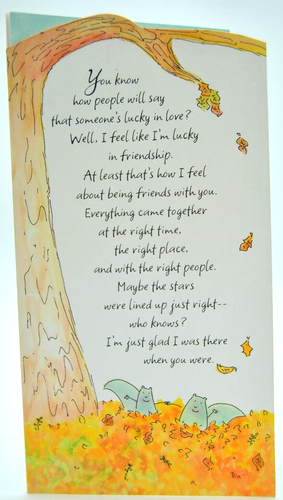 You know
how people will say
that someone's lucky in love?
Well, I feel like I'm lucky
in friendship.
At least that's how I feel
about being friends with you.
Everything came together
at the right time,
the right place,
and with the right people.
Maybe the stars
were lined up just right--
who knows?
I'm just glad I was there
when you were.